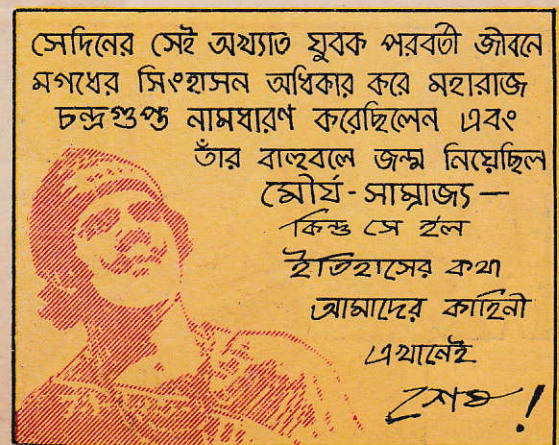 সেদিনের সেই অখ্যাত যুবক পরবর্তী জীবনে
মগধের সিংহাসন অধিকার করে মহারাজ
চন্দ্রগুপ্ত নামধারণ করেছিলেন এবং
তাঁর বাহুবলে জন্ম নিয়েছিল
মৌর্য-সাম্রাজ্য —
কিন্তু সে হল
ইতিহাসের কথা
আমাদের কাহিনী
এখানেই
শেষ !